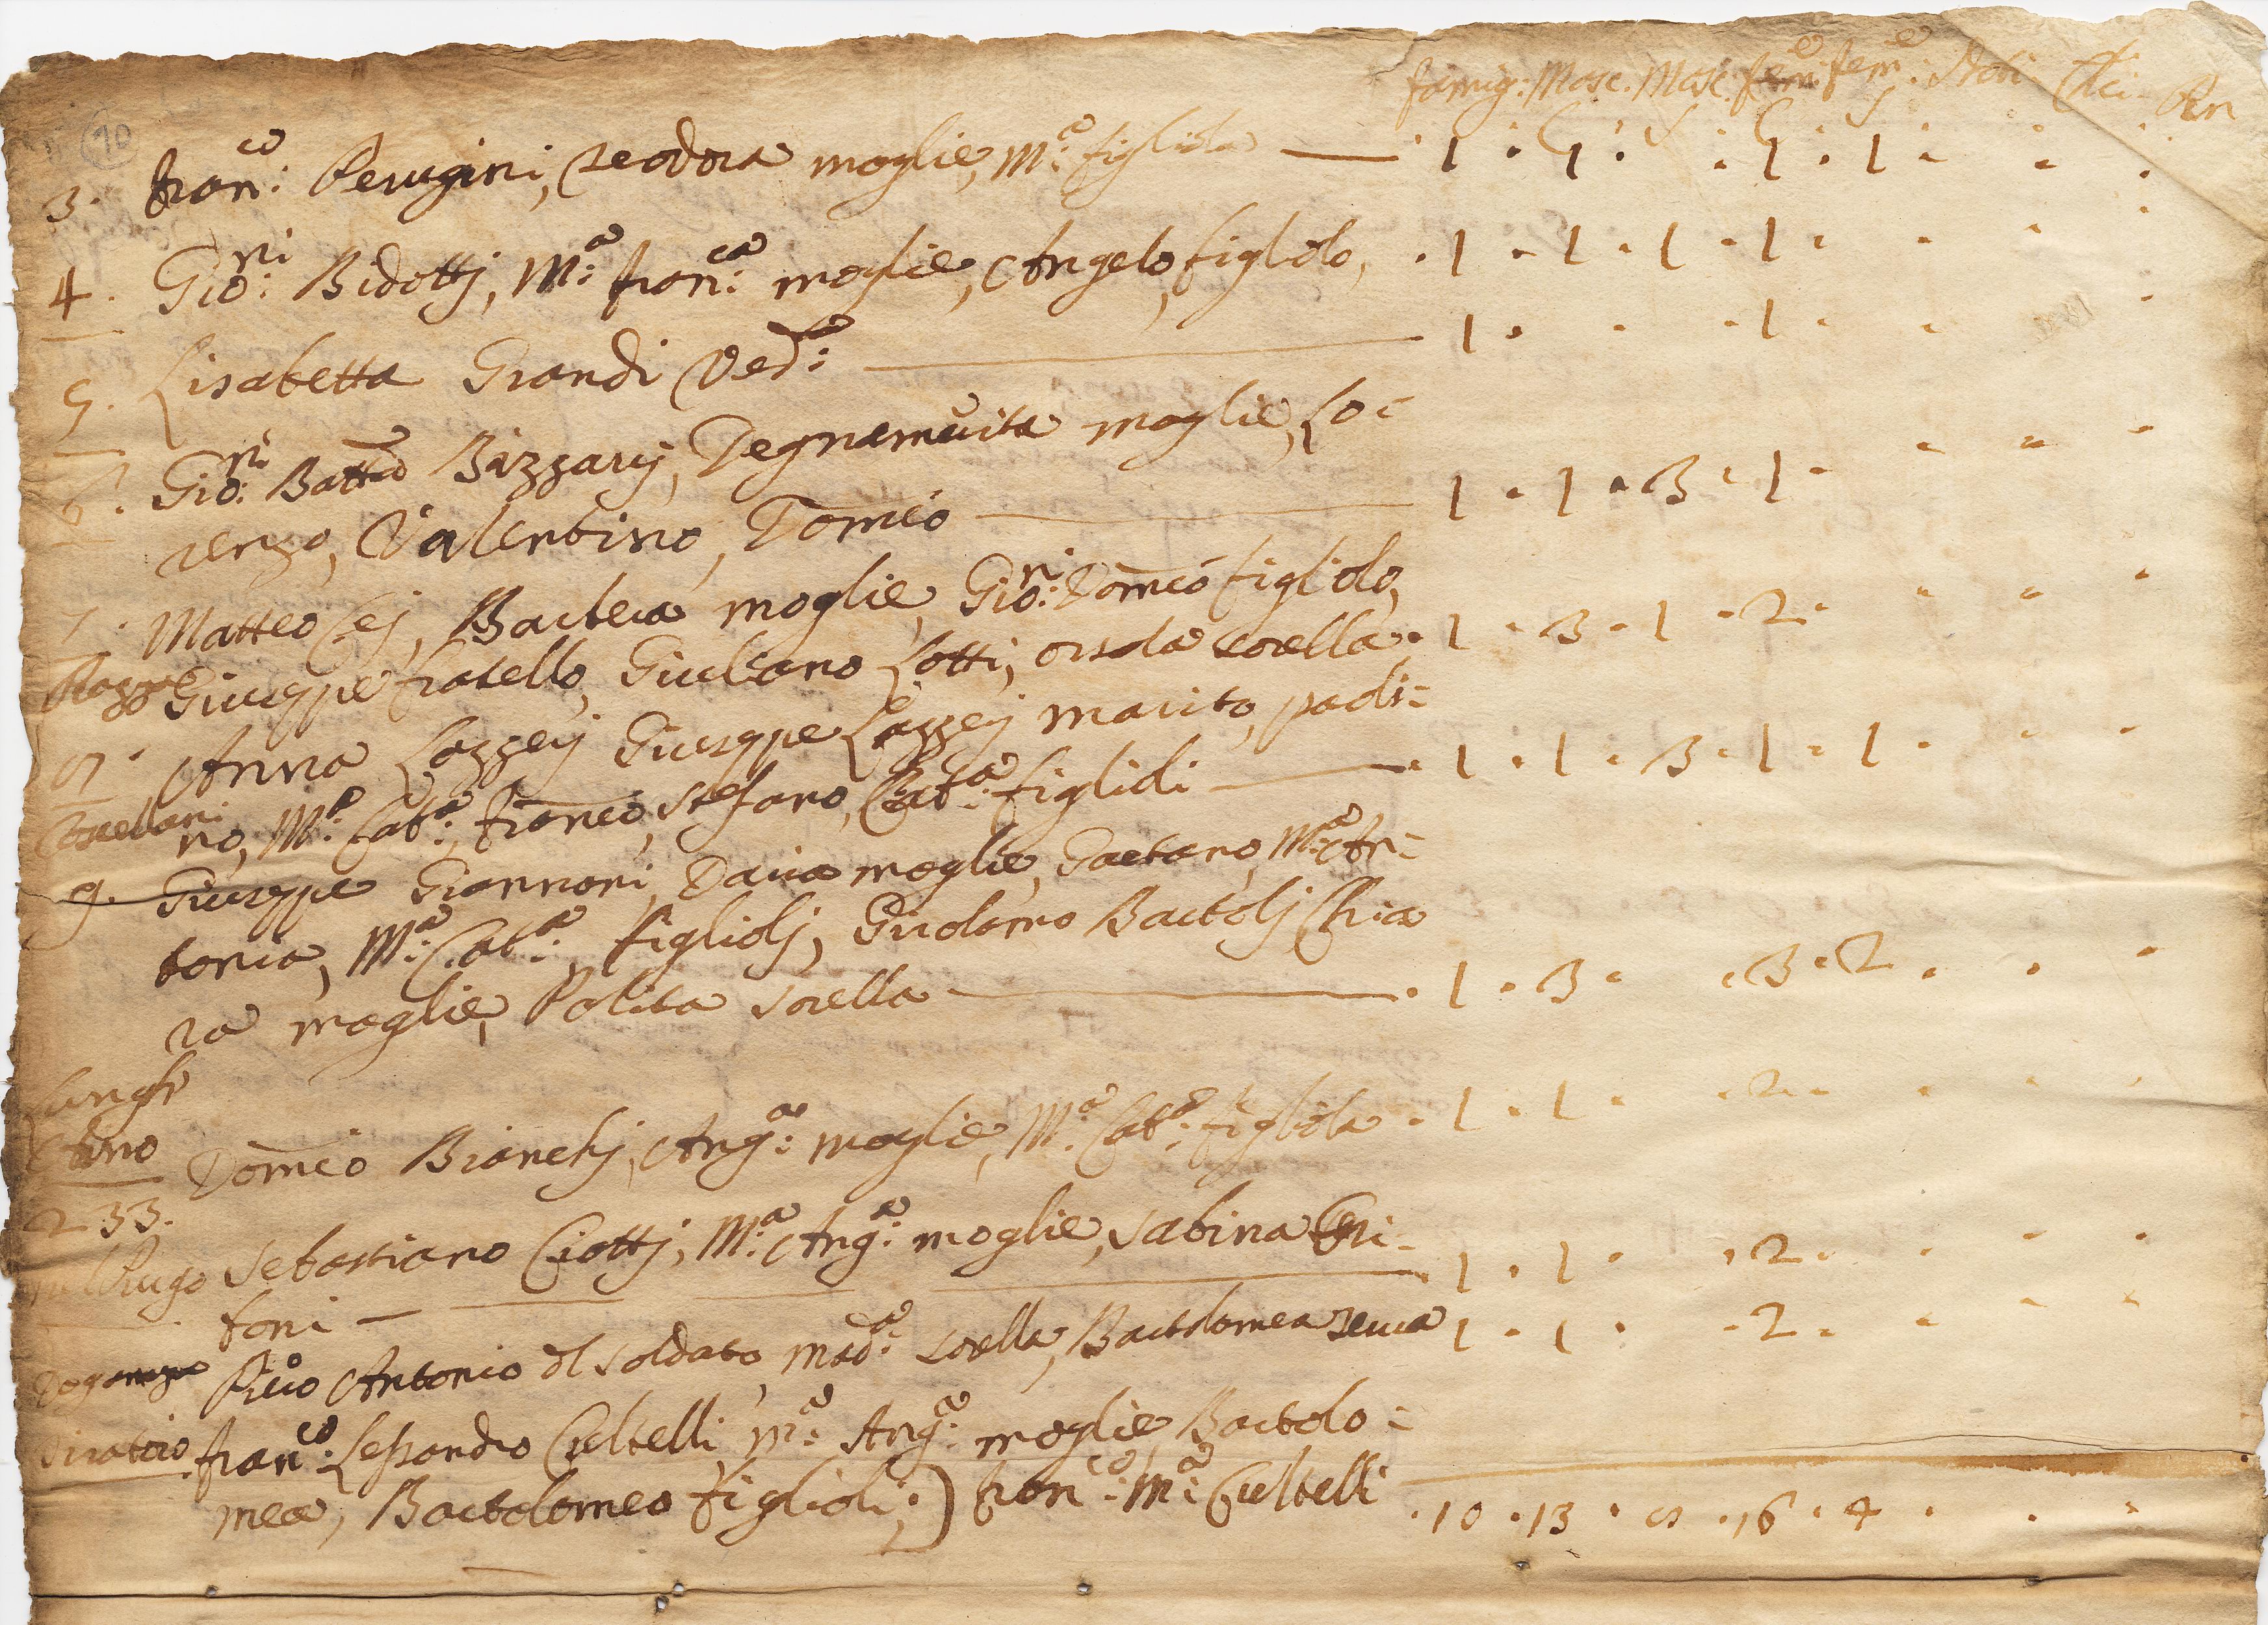 famig: Masc. Masc. fem:e fem:e
G S G S
90
3. Fran:co Perugini, Teodora moglie, M:a figliola — . 1 . 1 . . 1 . 1 .
4. Gio:ni Bidottj, M:a Fran:ca moglie, Angelo figliolo, . 1 . 1 . 1 . 1 .
5. Lisabetta Grandi Ved:a — 1 . . . 1 .
6. Gio:ni Batta Bizzarij, Degnamerita moglie, Lo=
renzo, Valentino, Domco — 1 . 1 . 3 . 1 .
7. Matteo Cej, Bartea moglie, Gio:ni Domco figliolo,
Giuseppe fratello, Giuliano Lotti, Orsola sorella . 1 . 3 . 1 . 2 .
8. Anna Lazzerj Giuseppe Lazzerj marito, padr=
no, M:a Cat:a, Franco, Stefano, Cat:a figlioli — . 1 . 1 . 3 . 1 . 1 .
9. Giuseppe Giannoni, Daria moglie, Gaetano, M:a An=
tonia, M:a Cat:a figliolj, Girolamo Bartolj Chia
ra moglie, Polita sorella — . 1 . 3 . . 3 . 2 .
Lungh
Arno Domco Bianchj, Ang:a moglie, M:a Cat:a figliola . 1 . 1 . . 2 .
233.
Sebastiano Ciottj, M:a Ang:a moglie, Sabina Gri=
foni — 1 . 1 . . 2 .
Piero Antonio del soldato, Mad:a sorella, Bartolomea serva 1 . 1 . . 2 .
Fran:co Lessandro Cieltelli, M:a Ang:a moglie, Bartolo=
mea, Bartolomeo figlioli;) Fran:co M:a Cieltelli . 10 . 13 . 8 . 16 . 4 .